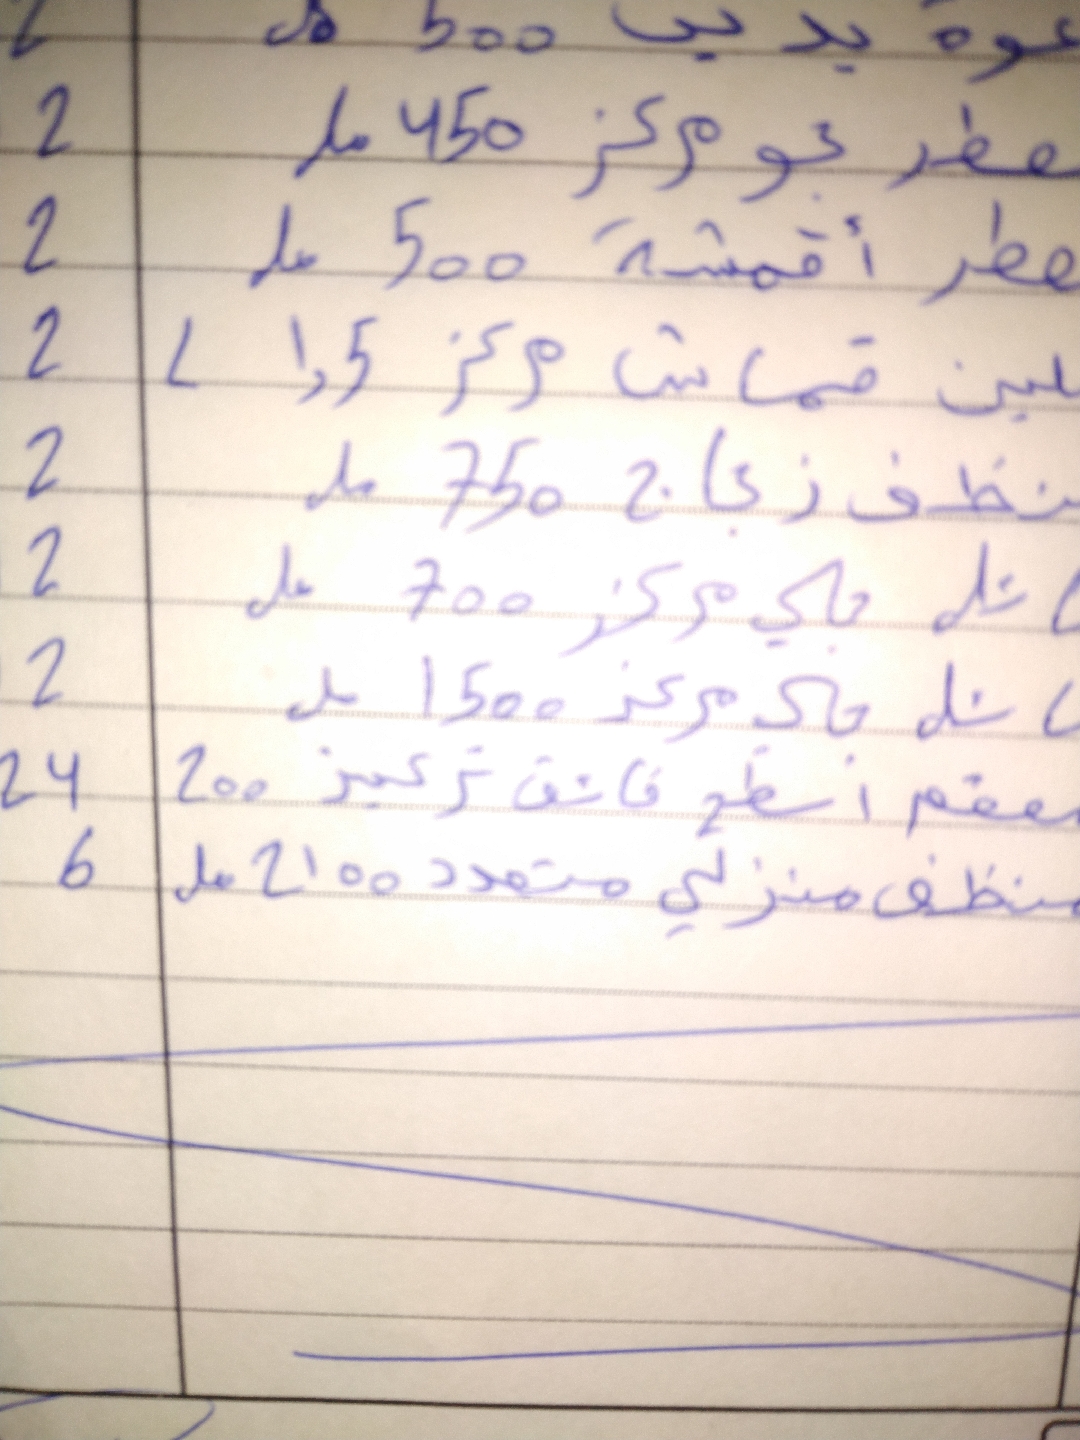 رغوة يدين 500 مل 2
معطر جو مركز 450 مل 2
معطر أقمشة 500 مل 2
ملين قماش مركز 1,5 L 2
منظف زجاج 750 مل 2
سائل جلي مركز 700 مل 2
سائل جلي مركز 1500 مل 2
معقم أسطح فائق تركيز 200 24
منظف منزلي متعدد 2100 مل 6